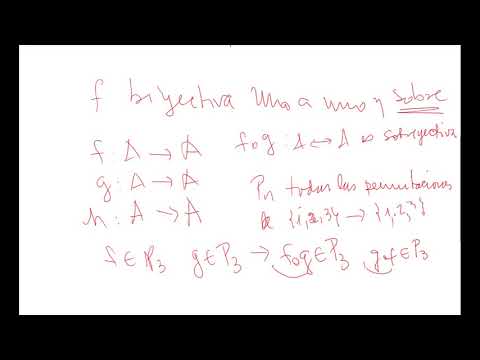 f biyectiva uno a uno y sobre
f: A → A fog: A ↔ A es sobreyectiva
g: A → A Pn todas las permutaciones
h: A → A de {1,2,3} → {1,2,3}
f ∈ P3 g ∈ P3 → fog ∈ P3 gf ∈ P3